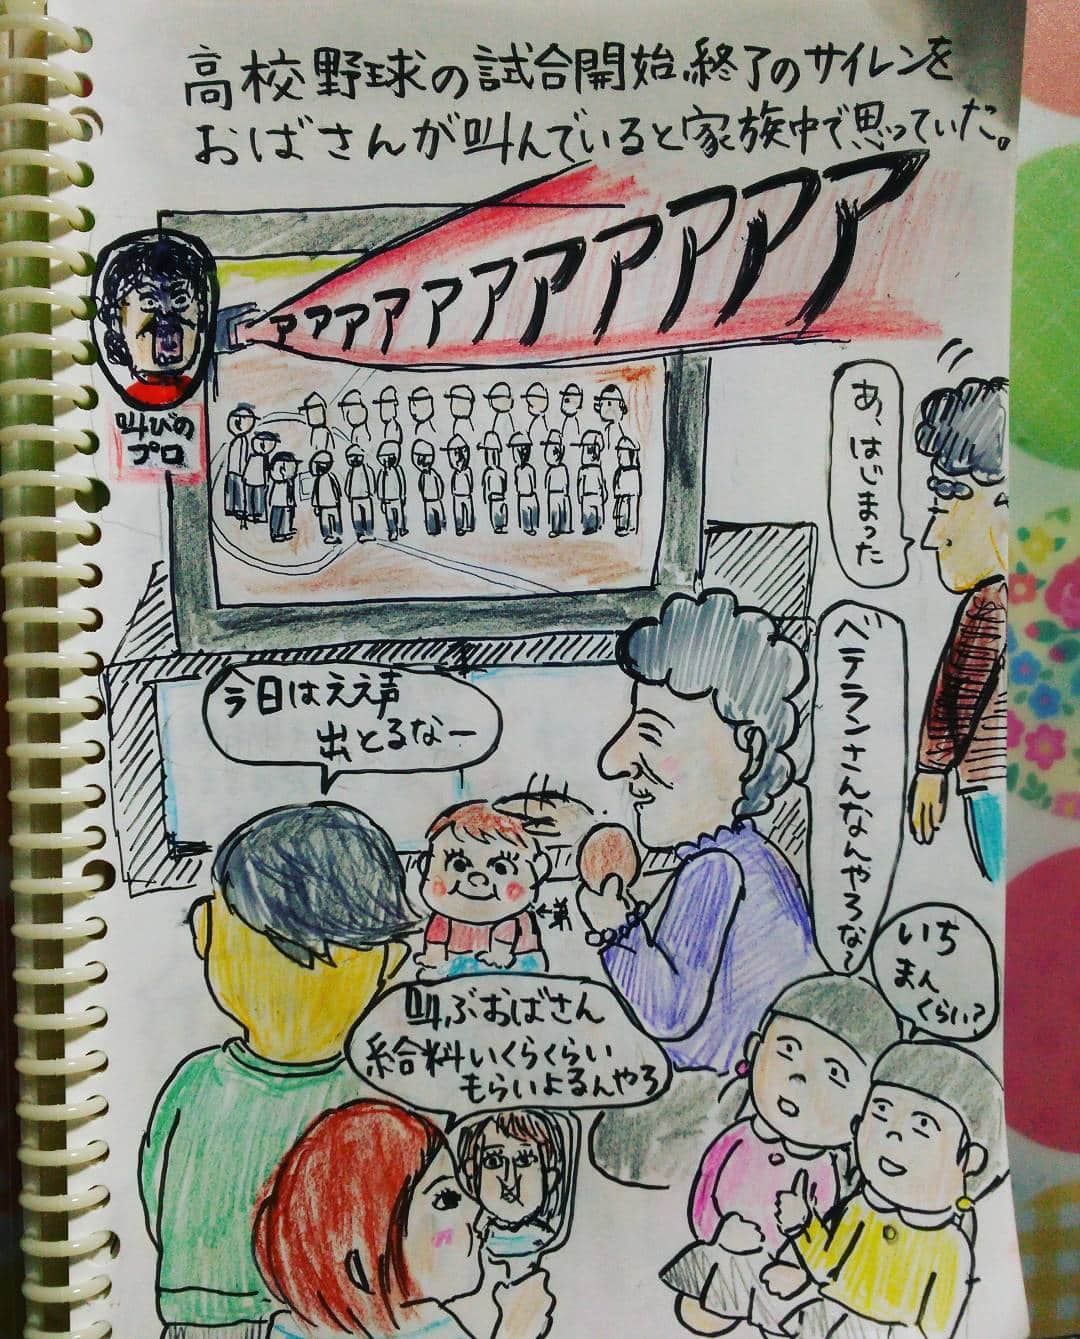 高校野球の試合開始、終了のサイレンを
おばさんが叫んでいると家族中で思っていた。
アアアアアアアアアアア
叫びの
プロ
あ、はじまった
今日はええ声
出とるなー
ベテランさんなんやろな〜
←弟
いち
まん
くらい?
叫ぶおばさん
給料いくらくらい
もらいよるんやろ